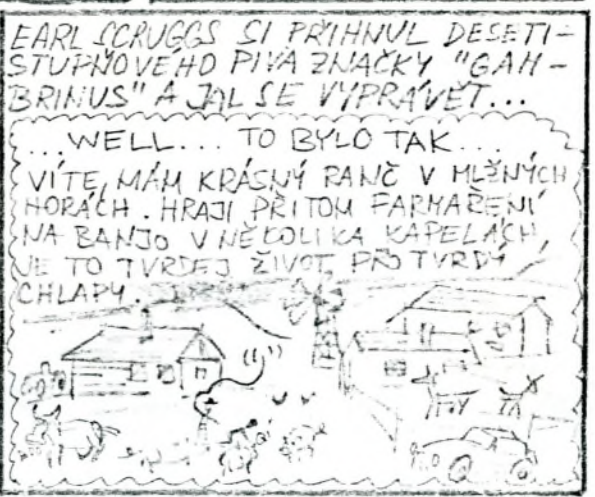 EARL SCRUGGS SI PŘIHNUL DESETI-
STUPŇOVÉHO PIVA ZNAČKY "GAM-
BRINUS" A JAL SE VYPRÁVĚT...
...WELL... TO BYLO TAK...
VÍTE, MÁM KRÁSNÝ RANČ V MLŽNÝCH
HORÁCH. HRAJI PŘI TOM FARMAŘENÍ
NA BANJO V NĚKOLIKA KAPELÁCH,
JE TO TVRDEJ ŽIVOT PRO TVRDÝ
CHLAPY.